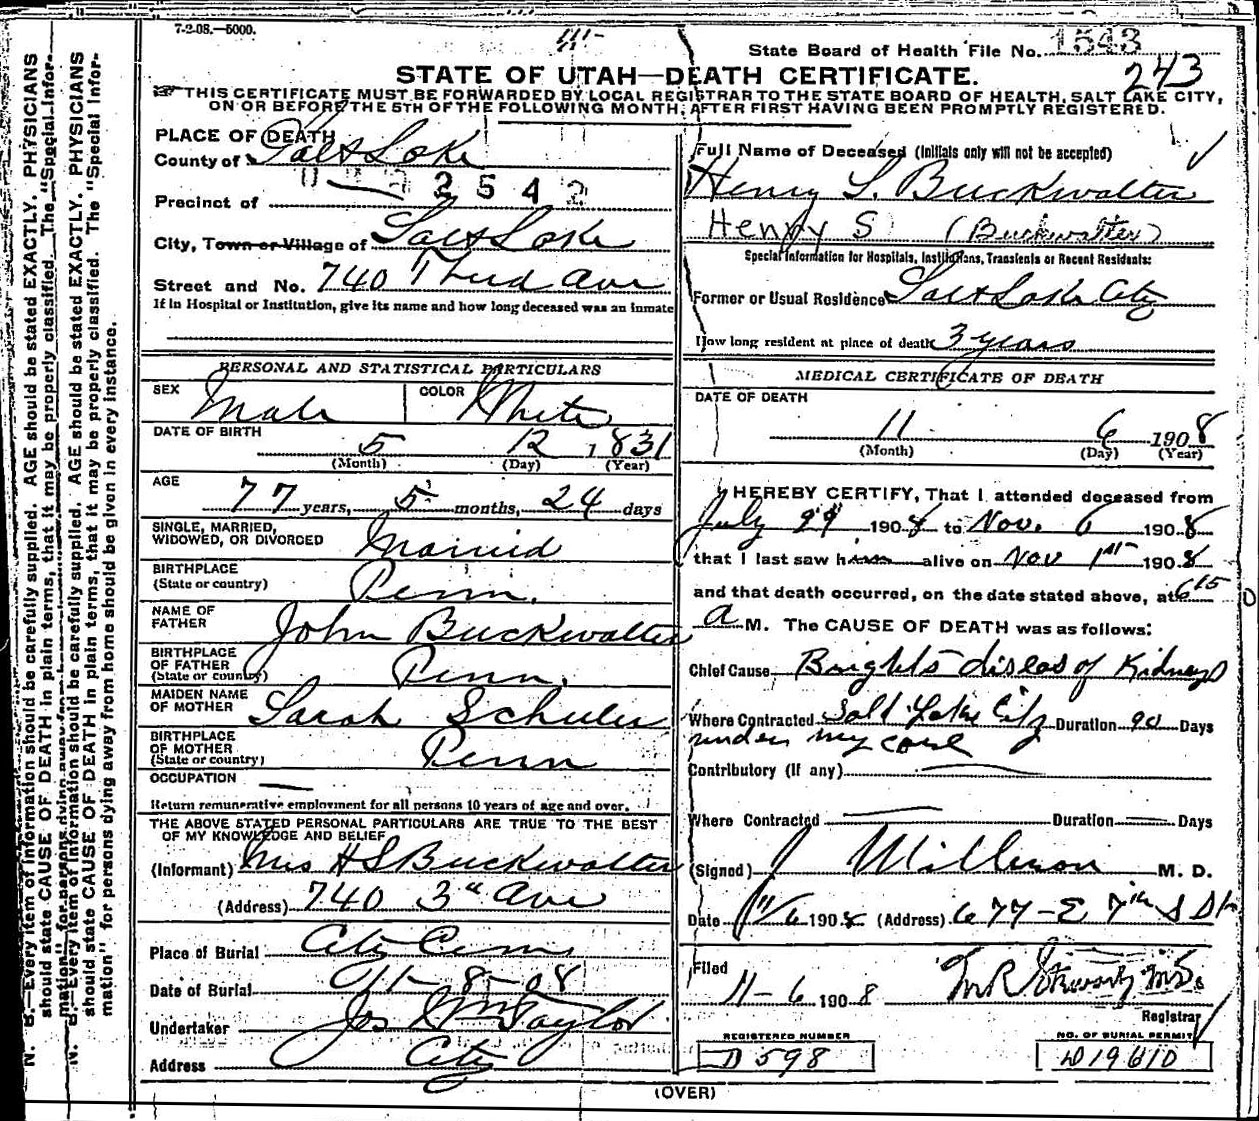 7-2-08.—5000.
State Board of Health File No. 1543
243
STATE OF UTAH—DEATH CERTIFICATE.
THIS CERTIFICATE MUST BE FORWARDED BY LOCAL REGISTRAR TO THE STATE BOARD OF HEALTH, SALT LAKE CITY,
ON OR BEFORE THE 5TH OF THE FOLLOWING MONTH, AFTER FIRST HAVING BEEN PROMPTLY REGISTERED.
PLACE OF DEATH
County of Salt Lake
2542
Precinct of
City, Town or Village of Salt Lake
Street and No. 740 Third Ave
If in Hospital or Institution, give its name and how long deceased was an inmate
PERSONAL AND STATISTICAL PARTICULARS
SEX Male COLOR White
DATE OF BIRTH 5 12 1831
(Month) (Day) (Year)
AGE 77 years, 5 months, 24 days
SINGLE, MARRIED,
WIDOWED, OR DIVORCED Married
BIRTHPLACE
(State or country) Penn.
NAME OF
FATHER John Buckwalter
BIRTHPLACE
OF FATHER
(State or country) Penn.
MAIDEN NAME
OF MOTHER Sarah Schuler
BIRTHPLACE
OF MOTHER
(State or country) Penn
OCCUPATION —
Return remunerative employment for all persons 10 years of age and over.
THE ABOVE STATED PERSONAL PARTICULARS ARE TRUE TO THE BEST
OF MY KNOWLEDGE AND BELIEF
(Informant) Mrs H S Buckwalter
(Address) 740 3" Ave
Place of Burial City Cem
Date of Burial 11-8-08
Undertaker Jos Wm Taylor
Address City
Full Name of Deceased (Initials only will not be accepted)
Henry S. Buckwalter
Henry S (Buckwalter)
Special Information for Hospitals, Institutions, Transients or Recent Residents:
Former or Usual Residence Salt Lake City
How long resident at place of death 3 years
MEDICAL CERTIFICATE OF DEATH
DATE OF DEATH
11 6 1908
(Month) (Day) (Year)
I HEREBY CERTIFY, That I attended deceased from
July 29 1908 to Nov. 6 1908
that I last saw him alive on Nov 1st 1908
and that death occurred, on the date stated above, at 6 15
a M. The CAUSE OF DEATH was as follows:
Chief Cause Brights diseas of Kidneys
Where Contracted Salt Lake City Duration 90 Days
under my care
Contributory (if any)
Where Contracted — Duration — Days
(Signed) J M. D.
Date 11/6 1908 (Address) 677-E 7th S St
Filed
11-6 1908
Registrar
REGISTERED NUMBER
D 598
NO. OF BURIAL PERMIT
(OVER)
N. B.—Every item of information should be carefully supplied. AGE should be stated EXACTLY. PHYSICIANS
should state CAUSE OF DEATH in plain terms, that it may be properly classified. The "Special Infor-
mation" for persons dying away from
N. B.—Every item of information should be carefully supplied. AGE should be stated EXACTLY. PHYSICIANS
should state CAUSE OF DEATH in plain terms, that it may be properly classified. The "Special Infor-
mation" for persons dying away from home should be given in every instance.